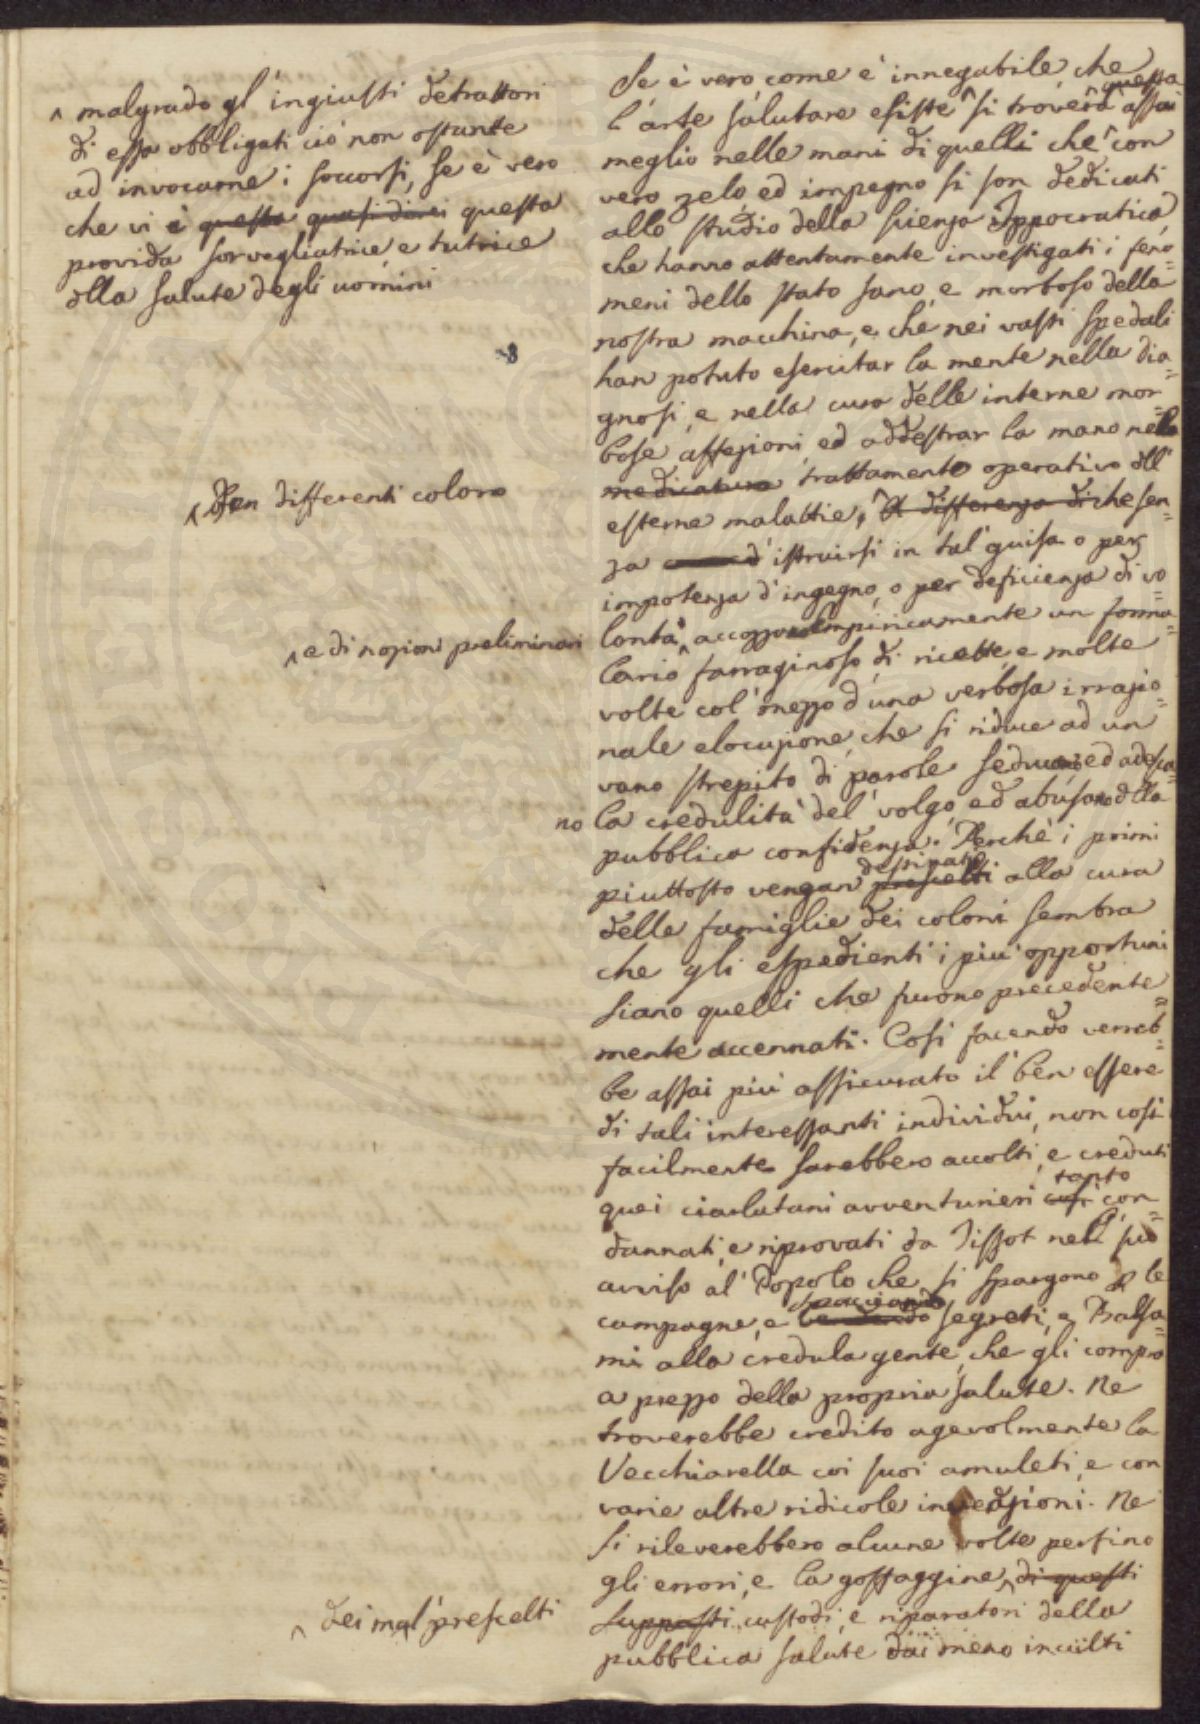 ^ malgrado gl' ingiusti detrattori
di essa obbligati ciò non ostante
ad invocarne i soccorsi, se è vero
che vi è questa quasi direi questa
provida sorvegliatrice e tutrice
dlla salute degli uomini
^ Ben differenti coloro
^ e di nozioni preliminari
no
^ dei mal' prescelti
Se è vero, come è innegabile, che
l'arte salutare esiste ^ si troverà ^ questa assai
meglio nelle mani di quelli che con
vero zelo, ed impegno si son dedicati
allo studio della scienza Ippocratica,
che hanno attentamente investigati i feno=
meni dello stato sano, e morboso della
nostra macchina, e che nei vasti spedali
han potuto esercitar la mente nella dia=
gnosi, e nella cura delle interne mor=
bose affezioni, ed addestrar la mano nello
medicatura trattamento operativo dll'
esterne malattie. ^ A differenza di che sen=
za d' istruirsi in tal' guisa o per
impotenza d' ingegno, o per deficienza di vo=
lontà ^ accozzano empiricamente un formo=
lario farraginoso di ricette, e molte
volte col' mezzo d' una verbosa irrazio=
nale elocuzione, che si riduce ad un
vano strepito di parole seducono, ed adesca=
la credulità del' volgo, ed abusano dlla
pubblica confidenza. Perchè i primi
piuttosto vengan prescelti destinati alla cura
delle famiglie dei coloni sembra
che gli espedienti i più opportuni
siano quelli che furono precedente=
mente accennati. Così facendo verreb=
be assai più assicurato il ben essere
di tali interessanti individui, non così
facilmente sarebbero accolti, e creduti
quei ciarlatani avventurieri così tanto con=
dannati, e riprovati da Tissot nell' suo
avviso al' Popolo che si spargono p le
campagne, e vendendo spacciando segreti, e Balsa=
mi alla credula gente, che gli compra
a prezzo della propria salute. Ne
troverebbe credito agevolmente la
Vecchiarella coi suoi amuleti, e con
varie altre ridicole invenzioni. Ne
si rileverebbero alcune volte perfino
gli errori, e la goffaggine ^ di questi
supposti custodi, e riparatori della
pubblica salute dai meno inculti